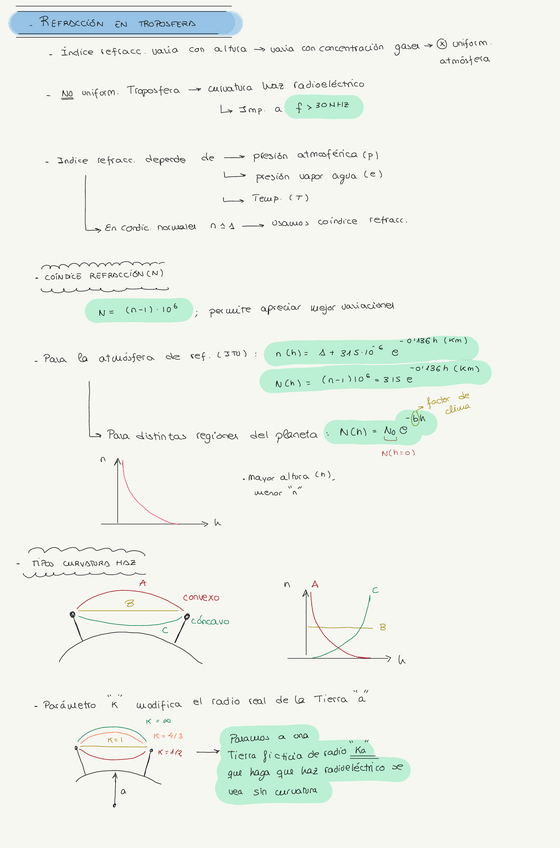 - REFRACCIÓN EN TROPOSFERA
- Índice refracc. varia con altura → varia con concentración gases → ⓧ uniform.
atmósfera
- No uniform. Troposfera → curvatura haz radioeléctrico
↳ Imp. a f > 30 MHZ
- Indice refracc. depende de → presión atmosférica (p)
↳ presión vapor agua (e)
↳ Temp. (T)
↳ En condic. normales n ≃ 1 → usamos coíndice refracc.
- COÍNDICE REFRACCIÓN (N)
N = (n-1) · 10⁶ ; permite apreciar mejor variaciones
- Para la atmósfera de ref. (ITU) : n(h) = 1 + 315·10⁻⁶ e^-0'136h (Km)
N(h) = (n-1)10⁶ = 315 e^-0'136h (Km)
factor de
clima
↳ Para distintas regiones del planeta : N(h) = No e^-bh
N(h=0)
n
h
· mayor altura (h),
menor "n"
- TIPOS CURVATURA HAZ
A
convexo
B
cóncavo
C
n
A
C
B
h
- Parámetro "K" modifica el radio real de la Tierra "a"
K = ∞
K = 4/3
K = 1
K = 1/2
a
→ Pasamos a una
Tierra ficticia de radio "Ka"
que haga que haz radioeléctrico se
vea sin curvatura